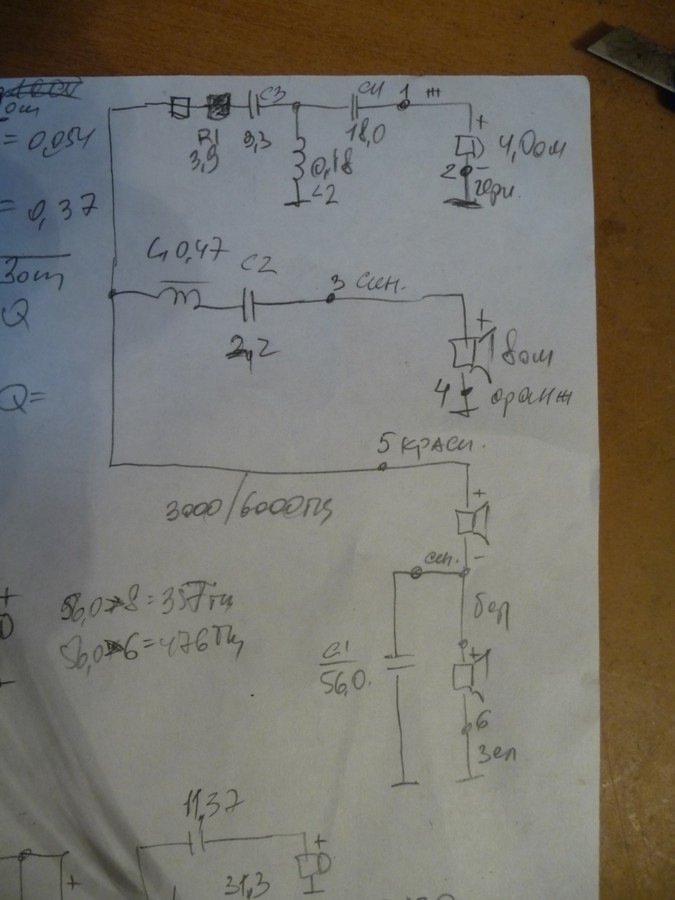 = 0,054
= 0,37
3om
Q
Q=
R1
3,9
C3
3,3
0,18
L2
C4
18,0
1
+
4,0ом
2 -
черн.
L1 0,47
C2
2,2
3 син.
+
8ом
4
оранж
5 красн.
3000/6000гц
+
-
син.
бел
C1
56,0
+
6
зел
56,0 8=357гц
56,0 6=476гц
+
11,37
+
31,3
+